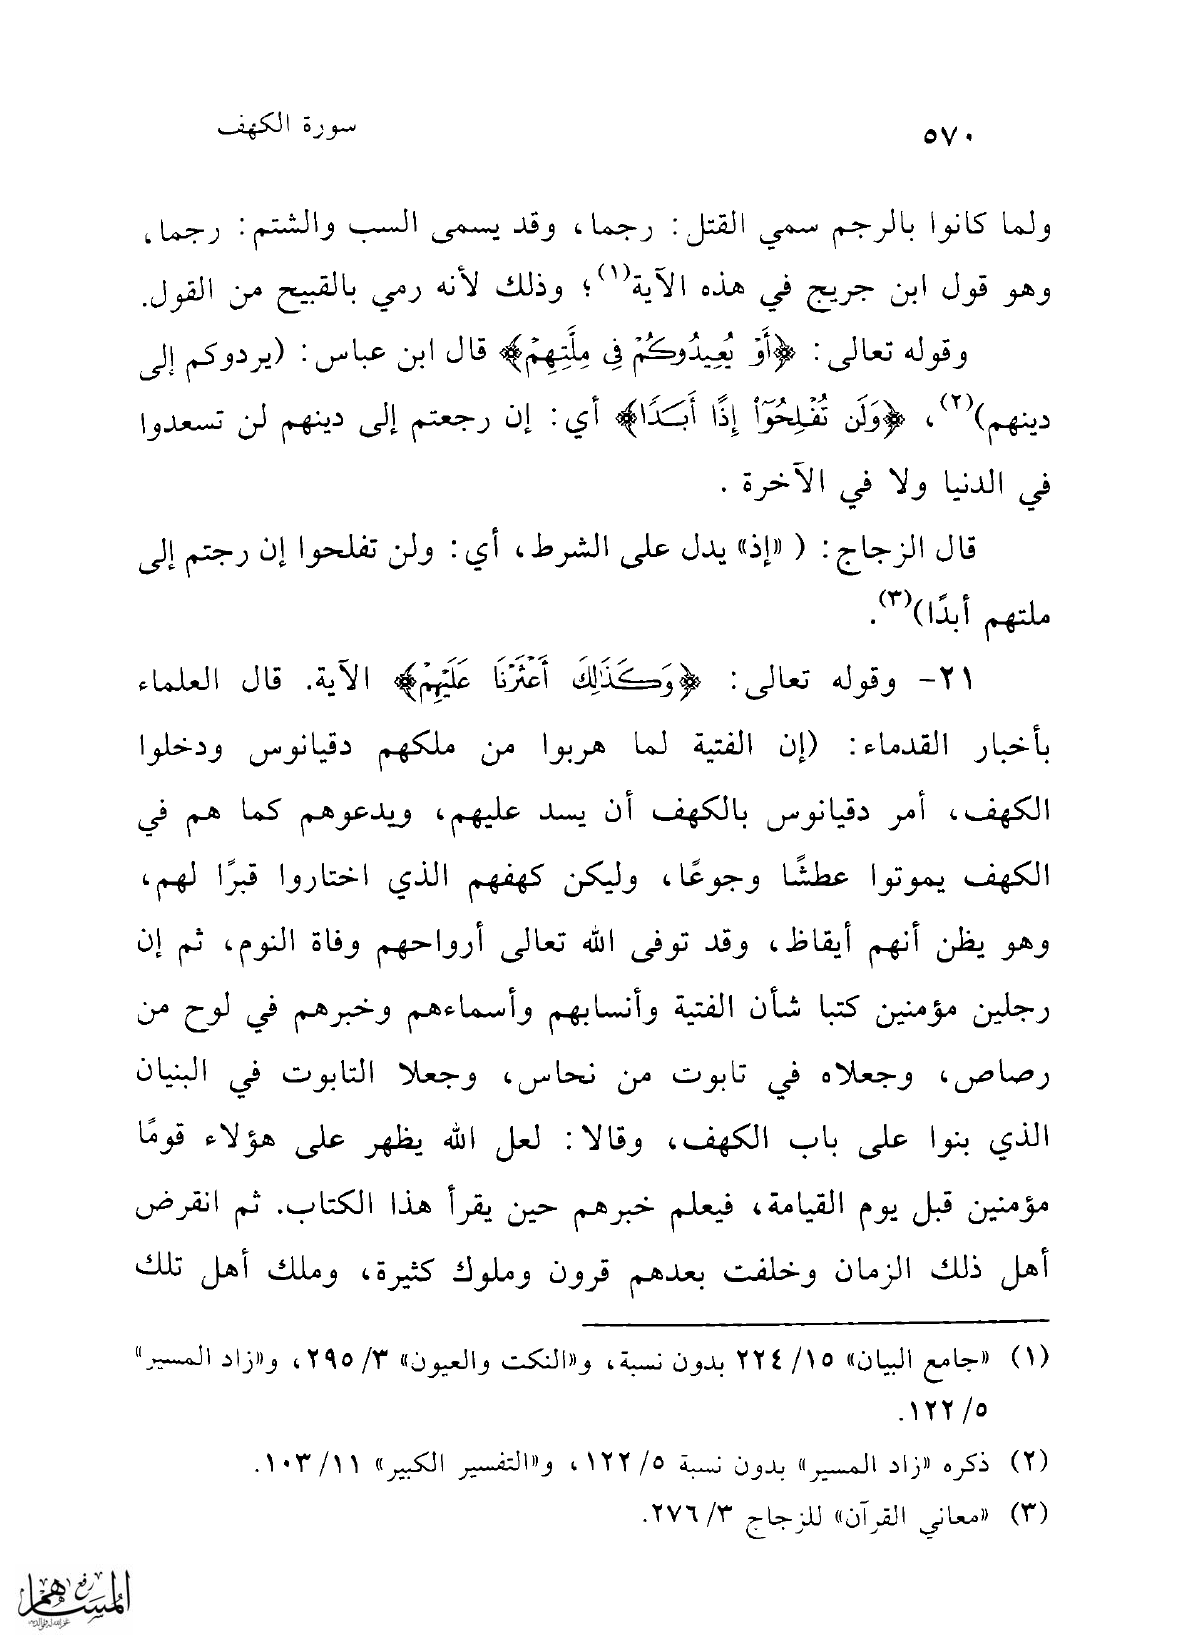 ٥٧٠ سورة الكهف
ولما كانوا بالرجم سمي القتل: رجما، وقد يسمى السب والشتم: رجما،
وهو قول ابن جريج في هذه الآية(١)؛ وذلك لأنه رمي بالقبيح من القول.
وقوله تعالى: ﴿أَوۡ يُعِيدُوكُمۡ فِي مِلَّتِهِمۡ﴾ قال ابن عباس: (يردوكم إلى
دينهم)(٢)، ﴿وَلَن تُفۡلِحُوٓاْ إِذًا أَبَدٗا﴾ أي: إن رجعتم إلى دينهم لن تسعدوا
في الدنيا ولا في الآخرة .
قال الزجاج: ( «إذ» يدل على الشرط، أي: ولن تفلحوا إن رجتم إلى
ملتهم أبدًا)(٣).
٢١- وقوله تعالى: ﴿وَكَذَٰلِكَ أَعۡثَرۡنَا عَلَيۡهِمۡ﴾ الآية. قال العلماء
بأخبار القدماء: (إن الفتية لما هربوا من ملكهم دقيانوس ودخلوا
الكهف، أمر دقيانوس بالكهف أن يسد عليهم، ويدعوهم كما هم في
الكهف يموتوا عطشًا وجوعًا، وليكن كهفهم الذي اختاروا قبرًا لهم،
وهو يظن أنهم أيقاظ، وقد توفى الله تعالى أرواحهم وفاة النوم، ثم إن
رجلين مؤمنين كتبا شأن الفتية وأنسابهم وأسماءهم وخبرهم في لوح من
رصاص، وجعلاه في تابوت من نحاس، وجعلا التابوت في البنيان
الذي بنوا على باب الكهف، وقالا: لعل الله يظهر على هؤلاء قومًا
مؤمنين قبل يوم القيامة، فيعلم خبرهم حين يقرأ هذا الكتاب. ثم انقرض
أهل ذلك الزمان وخلفت بعدهم قرون وملوك كثيرة، وملك أهل تلك
(١) «جامع البيان» ١٥/ ٢٢٤ بدون نسبة، و«النكت والعيون» ٣/ ٢٩٥، و«زاد المسير»
٥/ ١٢٢.
(٢) ذكره «زاد المسير» بدون نسبة ٥/ ١٢٢، و«التفسير الكبير» ١١/ ١٠٣.
(٣) «معاني القرآن» للزجاج ٣/ ٢٧٦.